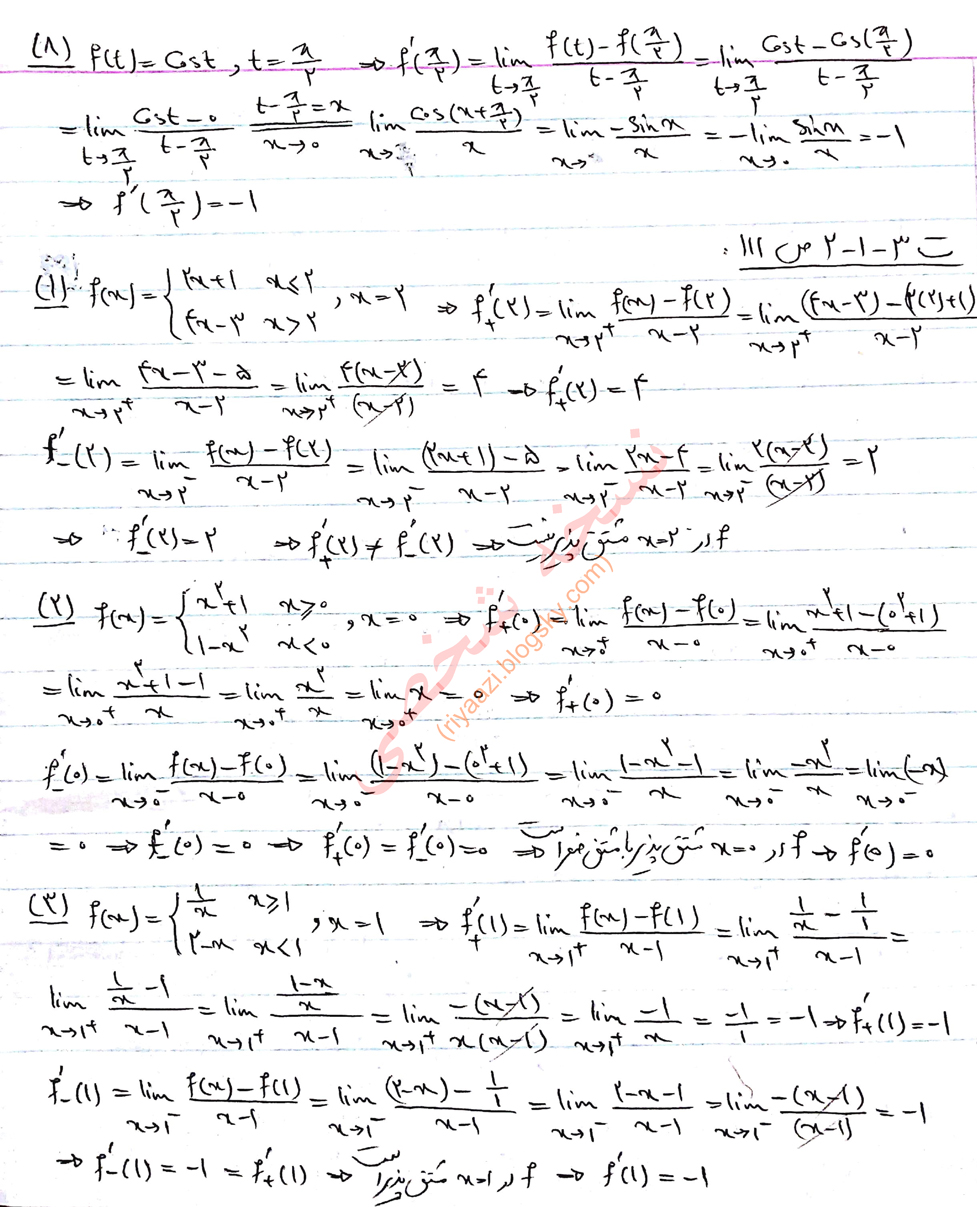 (۸) f(t)=Cost , t=π/۲ ⇒ f′(π/۲)=lim t→π/۲ (f(t)−f(π/۲))/(t−π/۲) = lim t→π/۲ (Cost−Cos(π/۲))/(t−π/۲)
= lim t→π/۲ (Cost−۰)/(t−π/۲) t−π/۲=x x→۰ lim x→۰ cos(x+π/۲)/x = lim x→۰ −sinx/x = −lim x→۰ sinx/x = −۱
⇒ f′(π/۲)=−۱
ت ۳−۱−۲ ص ۱۱۱ :
(۱) f(x)={۲x+۱ x≤۲ ; ۴x−۳ x>۲ , x=۲ ⇒ f′₊(۲)=lim x→۲⁺ (f(x)−f(۲))/(x−۲) = lim x→۲⁺ ((۴x−۳)−(۲(۲)+۱))/(x−۲)
= lim x→۲⁺ (۴x−۳−۵)/(x−۲) = lim x→۲⁺ ۴(x−۲)/(x−۲) = ۴ → f′₊(۲)=۴
f′₋(۲)=lim x→۲⁻ (f(x)−f(۲))/(x−۲) = lim x→۲⁻ ((۲x+۱)−۵)/(x−۲) = lim x→۲⁻ (۲x−۴)/(x−۲) = lim x→۲⁻ ۲(x−۲)/(x−۲) = ۲
⇒ f′₋(۲)=۲ ⇒ f′₊(۲)≠f′₋(۲) ⇒ f در x=۲ مشتق پذیر نیست
(۲) f(x)={x²+۱ x≥۰ ; ۱−x² x<۰ , x=۰ ⇒ f′₊(۰)=lim x→۰⁺ (f(x)−f(۰))/(x−۰) = lim x→۰⁺ (x²+۱−(۰²+۱))/(x−۰)
= lim x→۰⁺ (x²+۱−۱)/x = lim x→۰⁺ x²/x = lim x→۰⁺ x = ۰ ⇒ f′₊(۰)=۰
f′₋(۰)=lim x→۰⁻ (f(x)−f(۰))/(x−۰) = lim x→۰⁻ ((۱−x²)−(۰²+۱))/(x−۰) = lim x→۰⁻ (۱−x²−۱)/x = lim x→۰⁻ −x²/x = lim x→۰⁻ (−x)
= ۰ → f′₋(۰)=۰ → f′₊(۰)=f′₋(۰)=۰ ⇒ f در x=۰ مشتق پذیر با مشتق صفر است → f′(۰)=۰
(۳) f(x)={۱/x x≥۱ ; ۲−x x<۱ , x=۱ ⇒ f′₊(۱)=lim x→۱⁺ (f(x)−f(۱))/(x−۱) = lim x→۱⁺ (۱/x−۱/۱)/(x−۱) =
lim x→۱⁺ (۱/x−۱)/(x−۱) = lim x→۱⁺ ((۱−x)/x)/(x−۱) = lim x→۱⁺ −(x−۱)/x(x−۱) = lim x→۱⁺ −۱/x = −۱/۱ = −۱ → f′₊(۱)=−۱
f′₋(۱)=lim x→۱⁻ (f(x)−f(۱))/(x−۱) = lim x→۱⁻ ((۲−x)−۱/۱)/(x−۱) = lim x→۱⁻ (۲−x−۱)/(x−۱) = lim x→۱⁻ −(x−۱)/(x−۱) = −۱
⇒ f′₋(۱)=−۱=f′₊(۱) ⇒ f در x=۱ مشتق پذیر است → f′(۱)=−۱
نسخه شخصی
(riyaazi.blogsky.com)